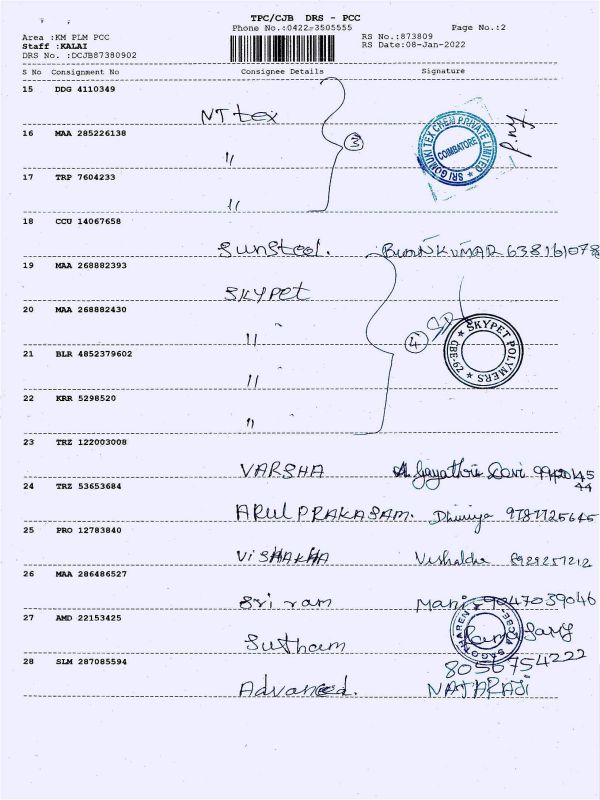 TPC/CJB DRS - PCC
Phone No.:0422-3505555 Page No.:2
Area :KM PLM PCC RS No.:873809
Staff :KALAI RS Date:08-Jan-2022
DRS No. :DCJB87380902
S No Consignment No Consignee Details Signature
15 DDG 4110349
NT tex
3
SRI GOMUKI TEX CHEM PRIVATE LIMITED
COIMBATORE
16 MAA 285226138
"
17 TRP 7604233
"
18 CCU 14067658
Sunsteel. KUMAR 638161078
19 MAA 268882393
SKYPet
20 MAA 268882430
"
4
SKYPET POLYMERS
CBE-29
21 BLR 4852379602
"
22 KRR 5298520
"
23 TRZ 122003008
VARSHA Gayathri Devi
24 TRZ 53653684
ARUL PRAKASAM. 9787725645
25 PRO 12783840
VISHAKHA
26 MAA 286486527
Sri ram Mani 9047039046
27 AMD 22153425
Sutham
8056754222
28 SLM 287085594
Advanced. NATARAJ